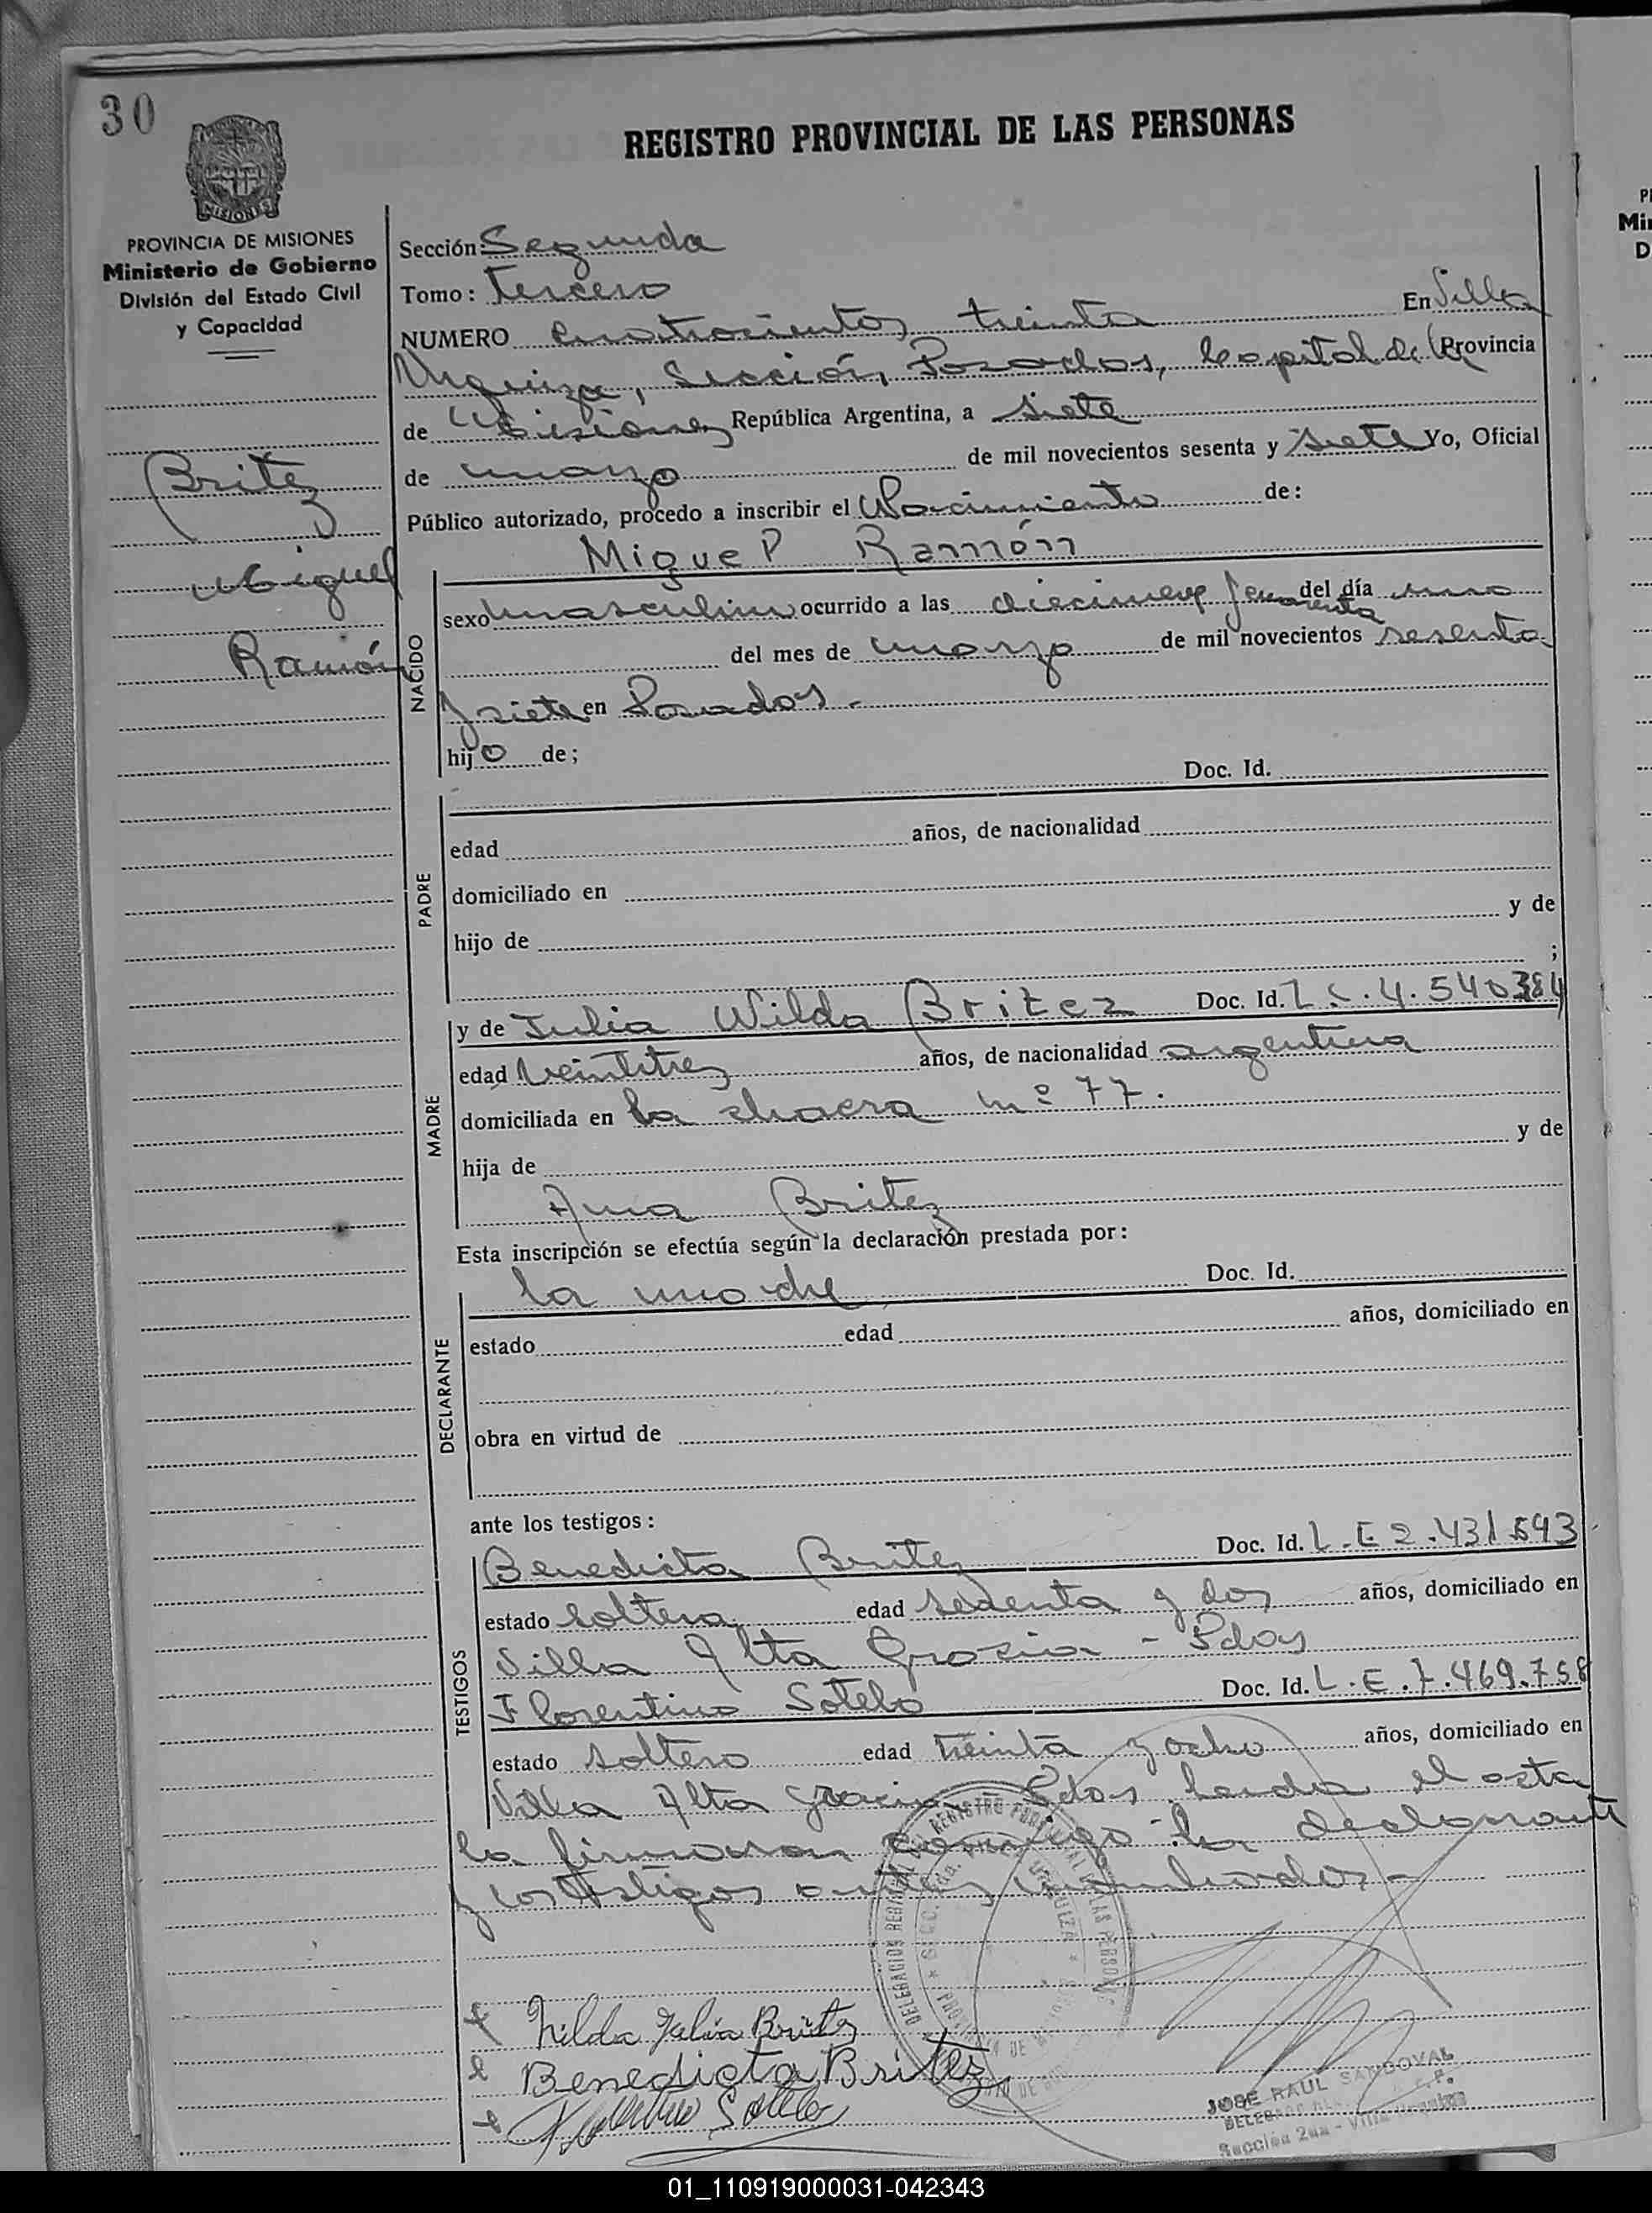 30
REGISTRO PROVINCIAL DE LAS PERSONAS
MISIONES
PROVINCIA DE MISIONES
Ministerio de Gobierno
División del Estado Civil
y Capacidad
Britez
Miguel
Ramón
Sección: Segunda
Tomo: Tercero
NUMERO cuatrocientos treinta En Villa
Urquiza, Sección Posadas, Capital de la Provincia
de Misiones República Argentina, a siete
de marzo de mil novecientos sesenta y siete Yo, Oficial
Público autorizado, procedo a inscribir el Nacimiento de:
Miguel Ramón
NACIDO
sexo masculino ocurrido a las diecinueve y cuarenta del día uno
del mes de marzo de mil novecientos sesenta
y siete en Posadas.-
hijo de;
Doc. Id.
PADRE
edad años, de nacionalidad
domiciliado en
hijo de y de
;
MADRE
y de Julia Wilda Britez Doc. Id. L.C. 4.540384
edad veintitrez años, de nacionalidad argentina
domiciliada en la chacra nº 77.
hija de y de
Ana Britez
Esta inscripción se efectúa según la declaración prestada por:
la madre Doc. Id.
DECLARANTE
estado edad años, domiciliado en
obra en virtud de
ante los testigos:
TESTIGOS
Benedicta Britez Doc. Id. L.E 2.431.593
estado soltera edad sesenta y dos años, domiciliado en
Villa Alta Gracia - Pdas
Florentino Sotelo Doc. Id. L.E.7.469.758
estado soltero edad treinta y ocho años, domiciliado en
Villa Alta Gracia Pdas leida el acta
la firmaran conmigo la declarante
y los testigos antes nombrados-
DELEGACION REGISTRO PROVINCIAL DE LAS PERSONAS
URQUIZA
Wilda Julia Britez
Benedicta Britez
Florentino Sotelo
JOSE RAUL SANDOVAL
Sección 2da - Villa Urquiza
PROVINCIA DE
01_110919000031-042343